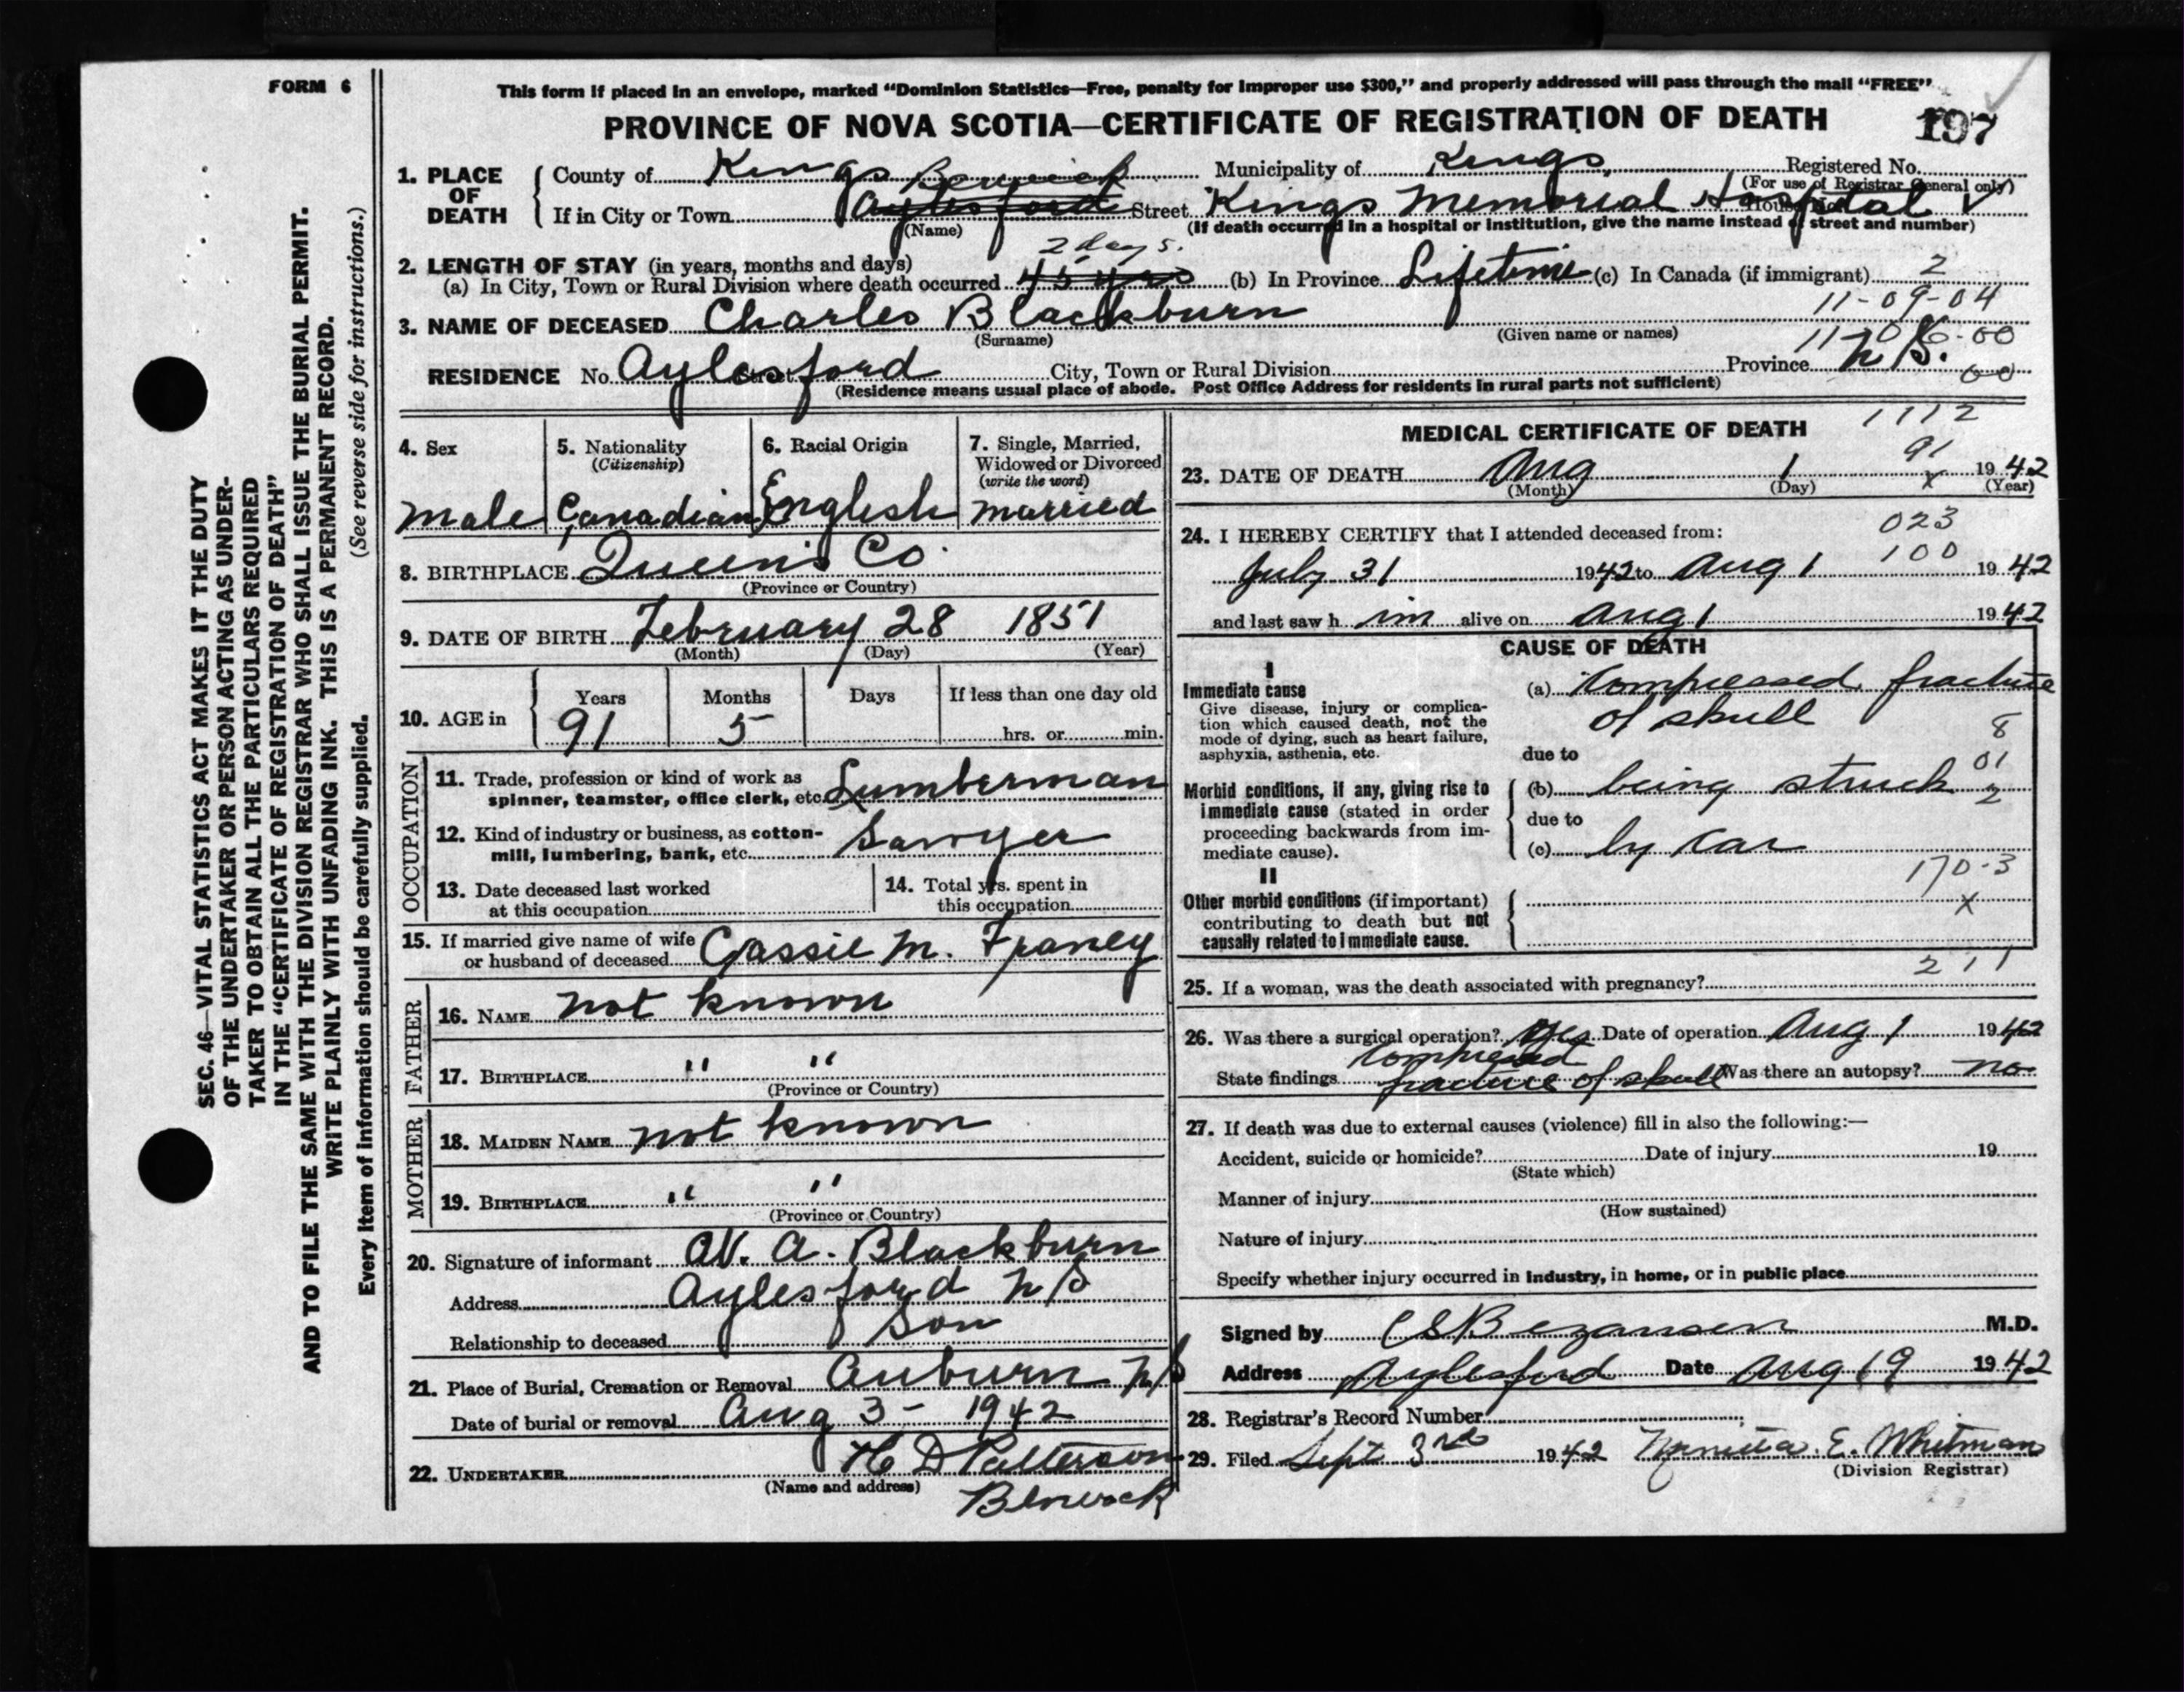 FORM 6
This form if placed in an envelope, marked "Dominion Statistics—Free, penalty for improper use $300," and properly addressed will pass through the mail "FREE"
PROVINCE OF NOVA SCOTIA—CERTIFICATE OF REGISTRATION OF DEATH
197
1. PLACE OF DEATH
County of Kings Municipality of Kings Registered No.
(For use of Registrar General only)
Berwick
If in City or Town Aylesford Street Kings Memorial Hospital House No.
(Name) (If death occurred in a hospital or institution, give the name instead of street and number)
2 days.
2. LENGTH OF STAY (in years, months and days)
(a) In City, Town or Rural Division where death occurred 45 yrs (b) In Province Lifetime (c) In Canada (if immigrant) 2
11-09-04
3. NAME OF DECEASED Charles Blackburn
(Surname) (Given name or names)
RESIDENCE No. Aylesford Street City, Town or Rural Division Province N S. 00
(Residence means usual place of abode. Post Office Address for residents in rural parts not sufficient)
4. Sex
male
5. Nationality
(Citizenship)
Canadian
6. Racial Origin
English
7. Single, Married,
Widowed or Divorced
(write the word)
married
8. BIRTHPLACE Queen's Co
(Province or Country)
9. DATE OF BIRTH February 28 1851
(Month) (Day) (Year)
10. AGE in
Years Months Days If less than one day old
91 5 hrs. or min.
OCCUPATION
11. Trade, profession or kind of work as
spinner, teamster, office clerk, etc. Lumberman
12. Kind of industry or business, as cotton-
mill, lumbering, bank, etc. Sawyer
13. Date deceased last worked
at this occupation
14. Total yrs. spent in
this occupation
15. If married give name of wife
or husband of deceased Cassie M. Franey
FATHER
16. NAME not known
17. BIRTHPLACE " "
(Province or Country)
MOTHER
18. MAIDEN NAME not known
19. BIRTHPLACE " "
(Province or Country)
20. Signature of informant W. A. Blackburn
Address Aylesford N S
Relationship to deceased Son
21. Place of Burial, Cremation or Removal Auburn N S
Date of burial or removal Aug 3 - 1942
22. UNDERTAKER H D Patterson
(Name and address) Berwick
MEDICAL CERTIFICATE OF DEATH
1112
91
23. DATE OF DEATH Aug 1 x 1942
(Month) (Day) (Year)
023
24. I HEREBY CERTIFY that I attended deceased from:
100
July 31 1942 to Aug 1 1942
and last saw h im alive on Aug 1 1942
CAUSE OF DEATH
I
Immediate cause
Give disease, injury or complica-
tion which caused death, not the
mode of dying, such as heart failure,
asphyxia, asthenia, etc.
(a) Compressed fracture
of skull
8
due to
01
Morbid conditions, if any, giving rise to
immediate cause (stated in order
proceeding backwards from im-
mediate cause).
(b) being struck 2
due to
(c) by car
170-3
II
Other morbid conditions (if important)
contributing to death but not
causally related to immediate cause.
x
211
25. If a woman, was the death associated with pregnancy?
26. Was there a surgical operation? Yes Date of operation Aug 1 1942
State findings Compressed fracture of skull Was there an autopsy? no
27. If death was due to external causes (violence) fill in also the following:—
Accident, suicide or homicide? Date of injury 19
(State which)
Manner of injury
(How sustained)
Nature of injury
Specify whether injury occurred in Industry, in home, or in public place
Signed by C S Bezanson M.D.
Address Aylesford Date Aug 19 1942
28. Registrar's Record Number
29. Filed Sept 3rd 1942 E. Whitman
(Division Registrar)
SEC. 46—VITAL STATISTICS ACT MAKES IT THE DUTY
OF THE UNDERTAKER OR PERSON ACTING AS UNDER-
TAKER TO OBTAIN ALL THE PARTICULARS REQUIRED
IN THE "CERTIFICATE OF REGISTRATION OF DEATH"
AND TO FILE THE SAME WITH THE DIVISION REGISTRAR WHO SHALL ISSUE THE BURIAL PERMIT.
WRITE PLAINLY WITH UNFADING INK. THIS IS A PERMANENT RECORD.
Every item of information should be carefully supplied. (See reverse side for instructions.)